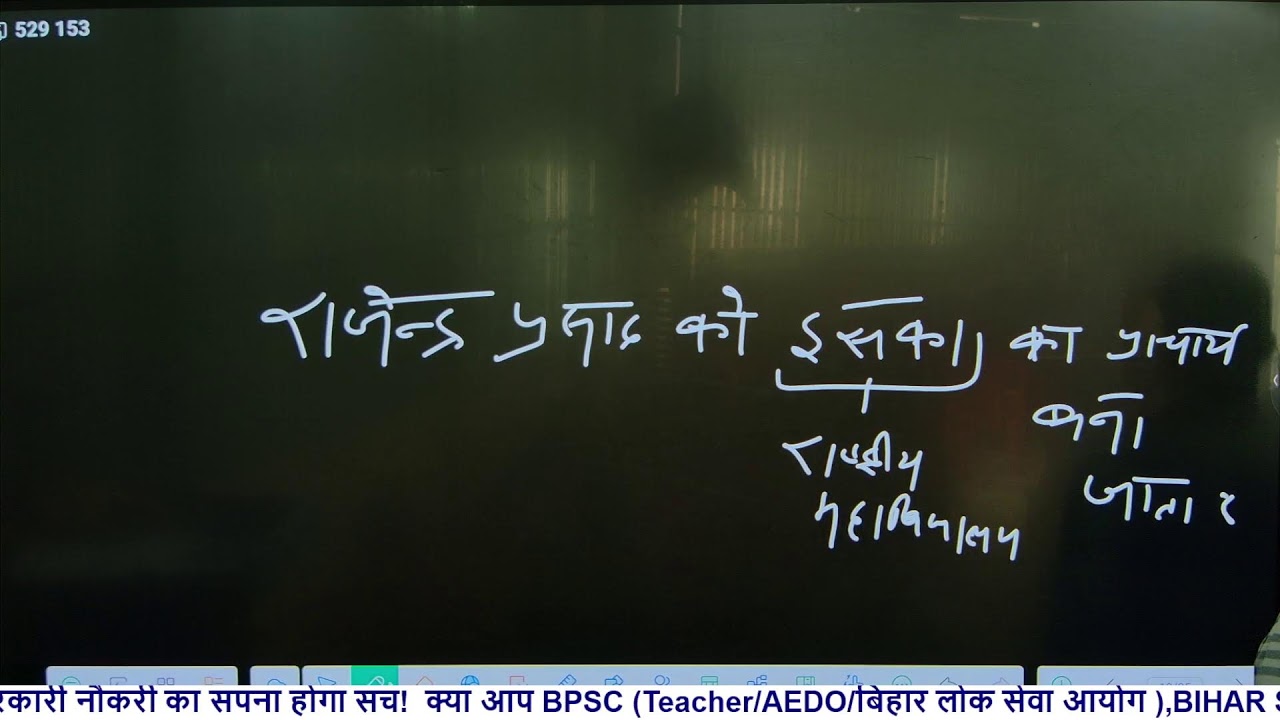 529 153
राजेन्द्र प्रसाद को इसका का प्राचार्य
बना
जाता है
राष्ट्रीय
महाविद्यालय
रकारी नौकरी का सपना होगा सच! क्या आप BPSC (Teacher/AEDO/बिहार लोक सेवा आयोग ),BIHAR S